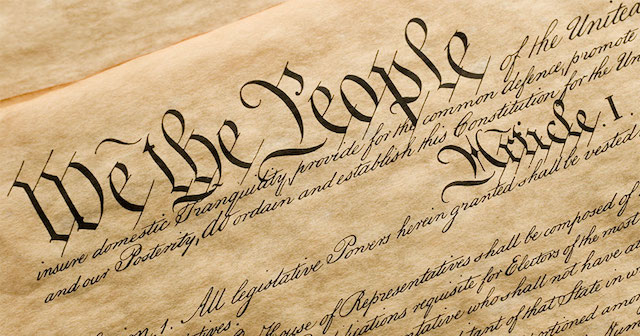 We the People of the United
insure domestic Tranquility, provide for the common defence, promote
and our Posterity, do ordain and establish this Constitution for the Un
Article. I.
1. All legislative Powers herein granted shall be vested
House of Representatives shall be composed of
requisite for Electors of the most
who shall not have
of that State in w